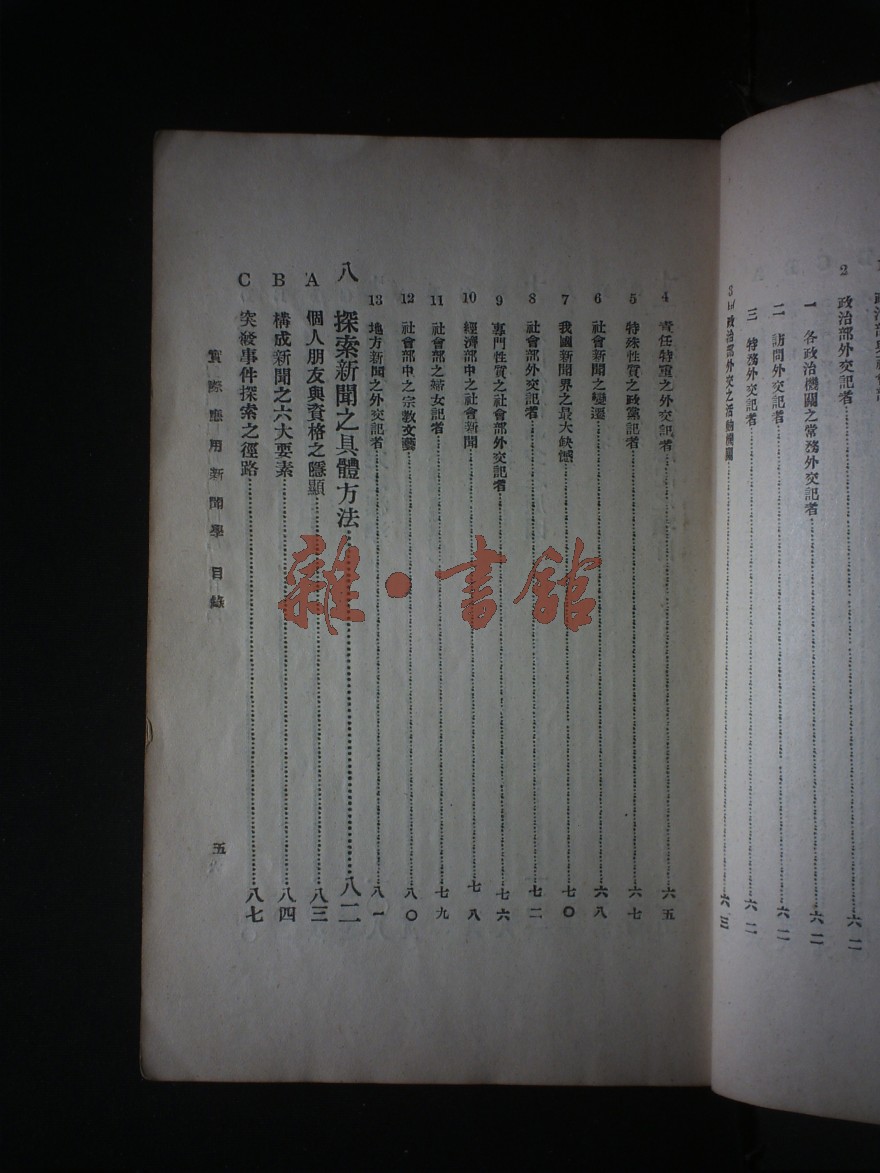 2 政治部外交記者……六二
一 各政治機關之常務外交記者……六二
二 訪問外交記者……六二
三 特務外交記者……六二
3 政治部外交之活動機關……六三
4 責任特重之外交記者……六五
5 特殊性質之政黨記者……六七
6 社會新聞之變遷……六八
7 我國新聞界之最大缺憾……七〇
8 社會部外交記者……七二
9 專門性質之社會部外交記者……七六
10 經濟部中之社會新聞……七八
11 社會部之婦女記者……七九
12 社會部中之宗教文藝……八〇
13 地方新聞之外交記者……八一
八 探索新聞之具體方法……八二
A 個人朋友與資格之隱顯……八三
B 構成新聞之六大要素……八四
C 突發事件探索之徑路……八七
實際應用新聞學 目錄
五
雜·書館